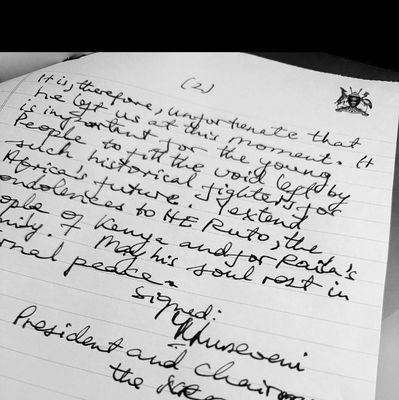 (2)
It is, therefore, unfortunate that
he left us at this moment. It
is important for the young
People to fill the void left by
such historical fighters for
Africa's future. I extend
ondolences to HE Ruto, the
ople of Kenya and for Raila's
mily. May his soul rest in
rnal peace.
Signed:
Museveni
President and Chairm
the